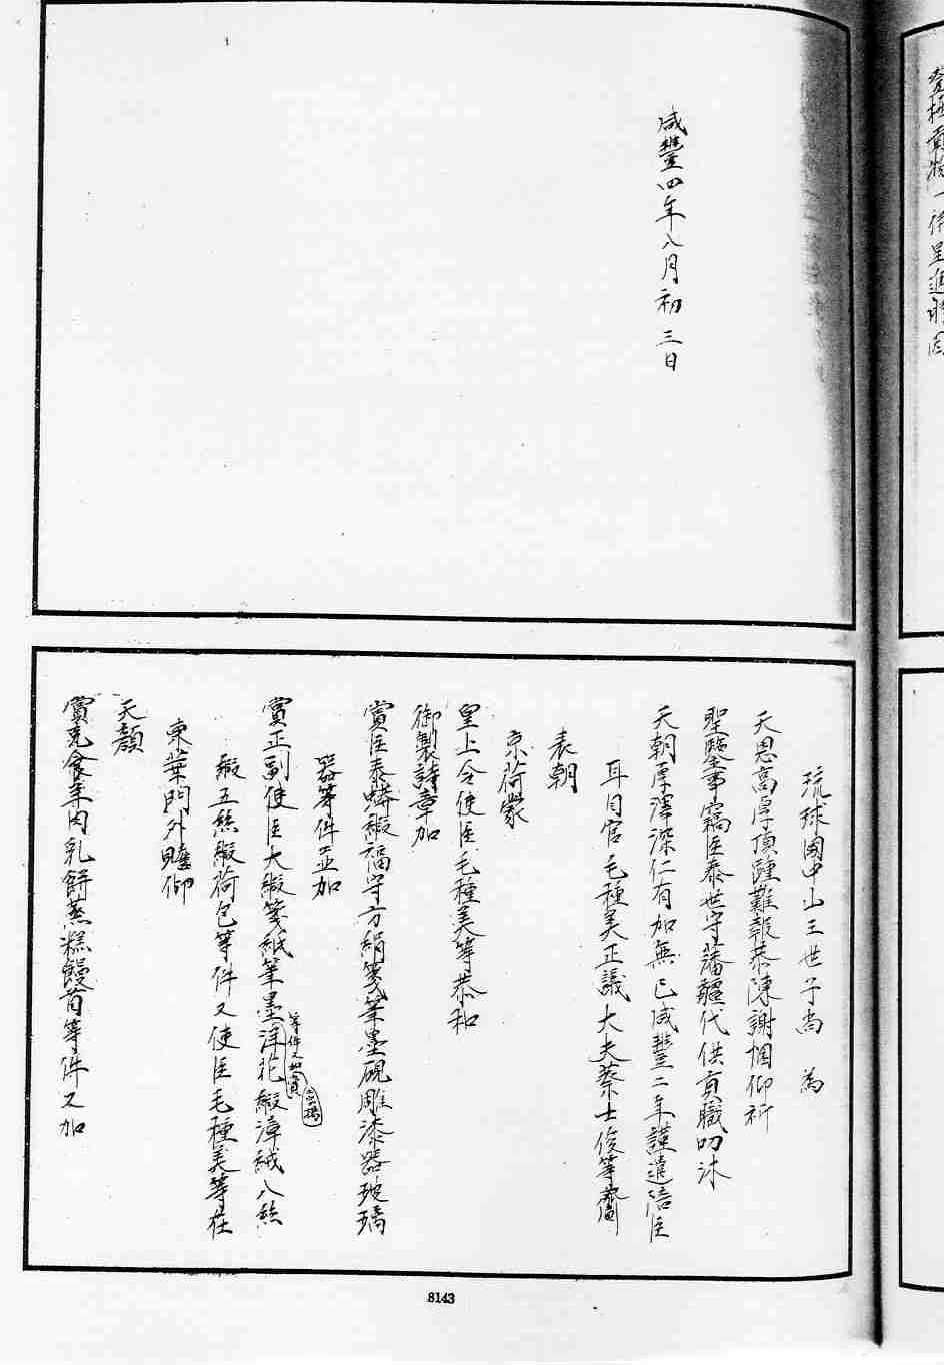 登極貢物一併呈進外因
咸豐四年八月初三日
琉球國中山王世子尚　為
天恩高厚頂踵難報恭陳謝悃仰祈
聖鑒事竊臣泰世守藩疆代供貢職叨沐
天朝厚澤深仁有加無已咸豐二年謹遣陪臣
耳目官毛種美正議大夫蔡士俊等齎
表朝
京荷蒙
皇上令使臣毛種美等恭和
御製詩章加
賞臣泰蟒緞福字方絹箋筆墨硯雕漆器玻璃
器等件並加
賞正副使臣大緞箋紙筆墨洋花緞漳絨八絲
等件又加賞
緞五絲緞荷包等件又使臣毛種美等在
東華門外瞻仰
天顏
賞克食羊肉乳餅蒸糕饅首等件又加
8143